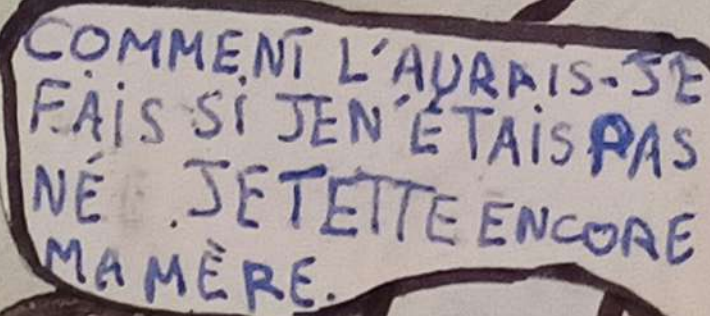 COMMENT L'AURAIS-JE
FAIS SI JEN'ÉTAIS PAS
NÉ . JETETTE ENCORE
MA MÈRE.